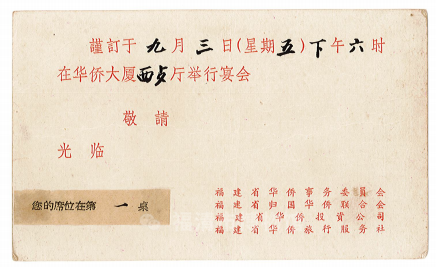 謹訂于九月三日(星期五)下午六时
在华侨大厦西点厅举行宴会
敬請
光临
您的席位在第一桌
福建省华侨事务委員会
福建省归国华侨联合会
福建省华侨投資公司
福建省华侨旅行服务社